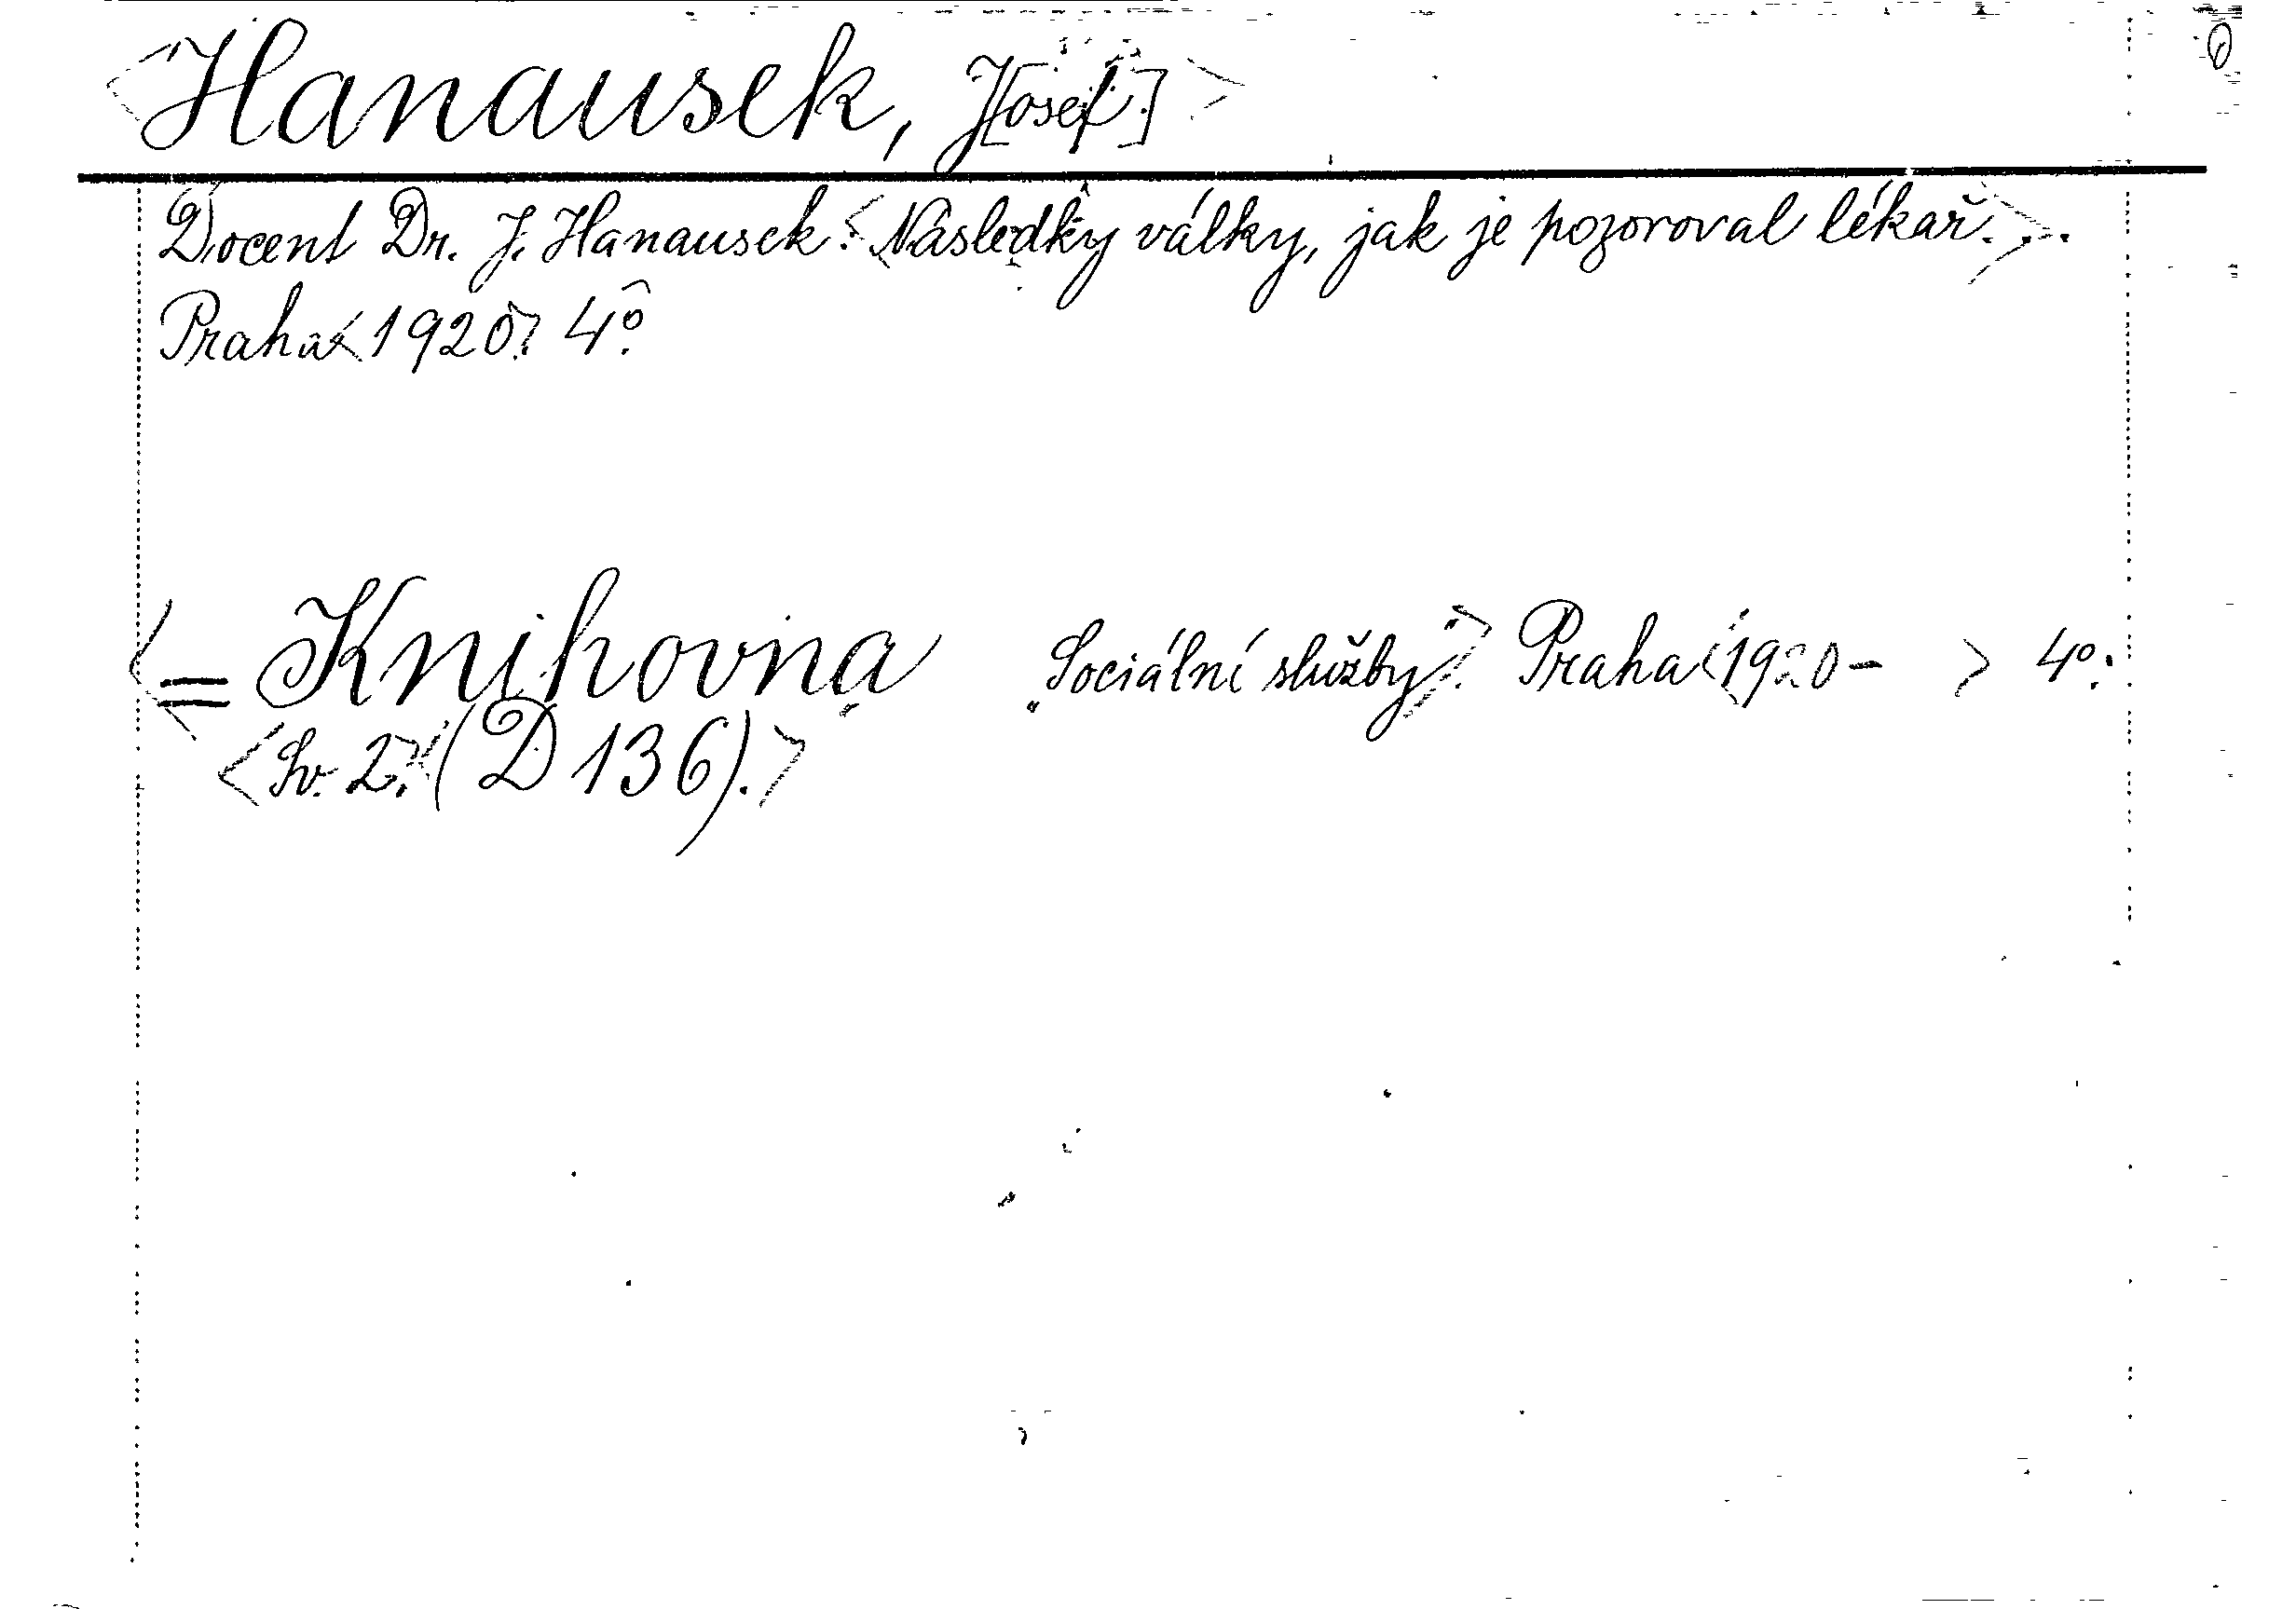 <Hanausek, J[osef]>
Docent Dr. J. Hanausek: <Následky války, jak je pozoroval lékař.>.
Praha <1920>. 4º.
<= Knihovna „Sociální služby“>. Praha <1920- > 4º.
<Sv. 2.> <(D 136).>